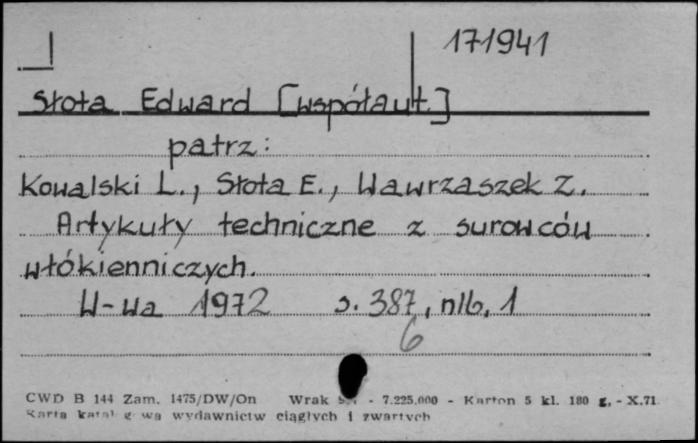 171941
Słota Edward [współaut.]
patrz:
Kowalski L., Słota E., Wawrzaszek Z.
Artykuły techniczne z surowców
włókienniczych.
W-wa 1972 s. 387, nlb. 1
6
CWD B 144 Zam. 1475/DW/On Wrak - 7.225.000 - Karton 5 kl. 180 g. - X.71
Karta katal wydawnictw ciągłych i zwartych